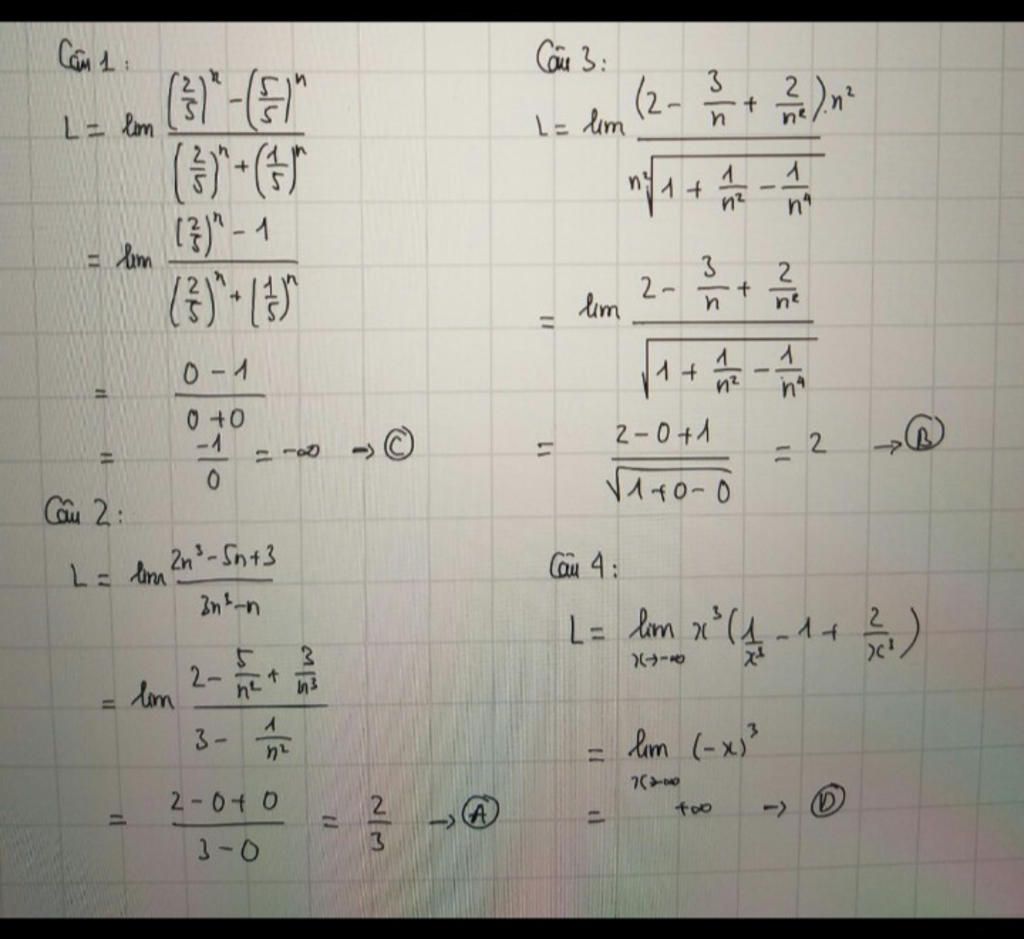 Câu 1:
L = lim ((2/5)^n - (5/5)^n) / ((2/5)^n + (1/5)^n)
= lim ((2/5)^n - 1) / ((2/5)^n + (1/5)^n)
= (0 - 1) / (0 + 0)
= -1/0 = -∞ → Ⓒ
Câu 2:
L = lim (2n³ - 5n + 3) / (3n³ - n)
= lim (2 - 5/n² + 3/n³) / (3 - 1/n²)
= (2 - 0 + 0) / (3 - 0) = 2/3 → Ⓐ
Câu 3:
L = lim ((2 - 3/n + 2/n²).n²) / (n²√(1 + 1/n² - 1/n⁴))
= lim (2 - 3/n + 2/n²) / √(1 + 1/n² - 1/n⁴)
= (2 - 0 + 1) / √(1 + 0 - 0) = 2 → Ⓑ
Câu 4:
L = lim x→-∞ x³(1/x³ - 1 + 2/x³)
= lim x→-∞ (-x)³
= +∞ → Ⓓ